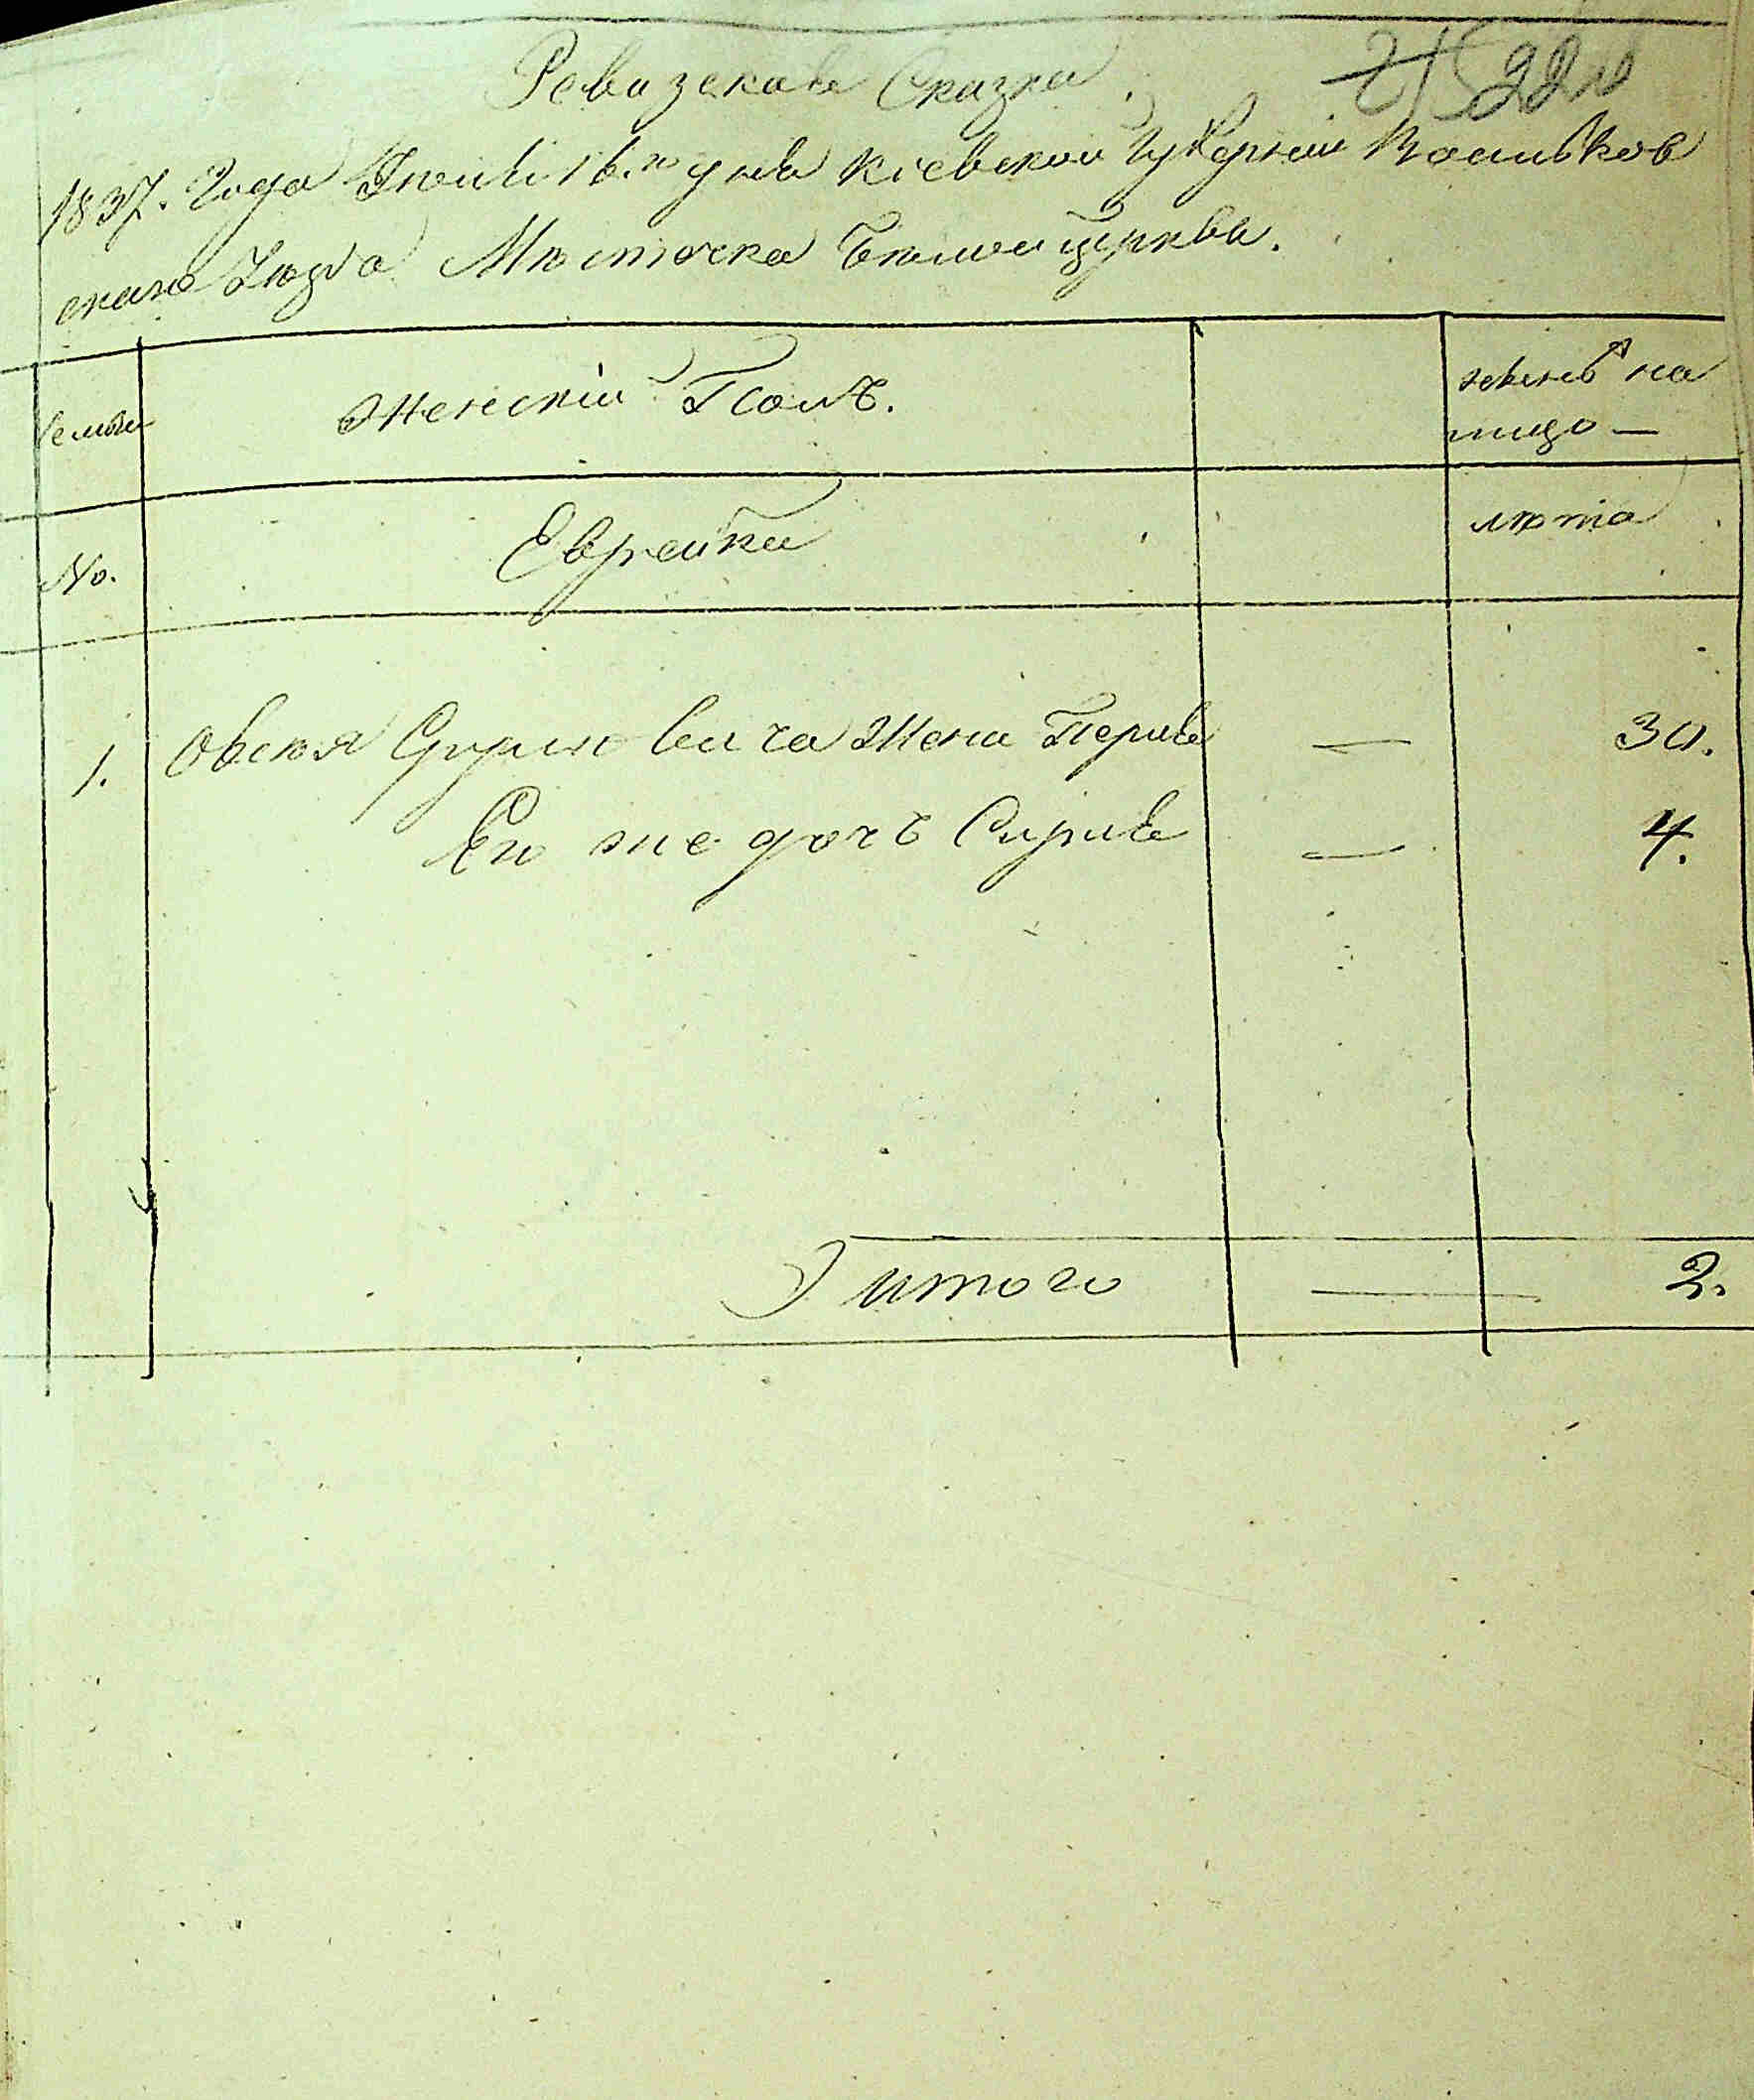 Ревизская Сказка
22
1837. Года Іюня 16.го дня Кіевской Губерніи Васильков
скаго Уѣзда Мѣстечка Белой Церкви.
Семьи
Женскій Полъ.
на
лицо —
No.
Еврейки
лѣта
1. Овсея вича Жена Перля — 30.
Его же дочь Сурля — 4.
Итого — 2.